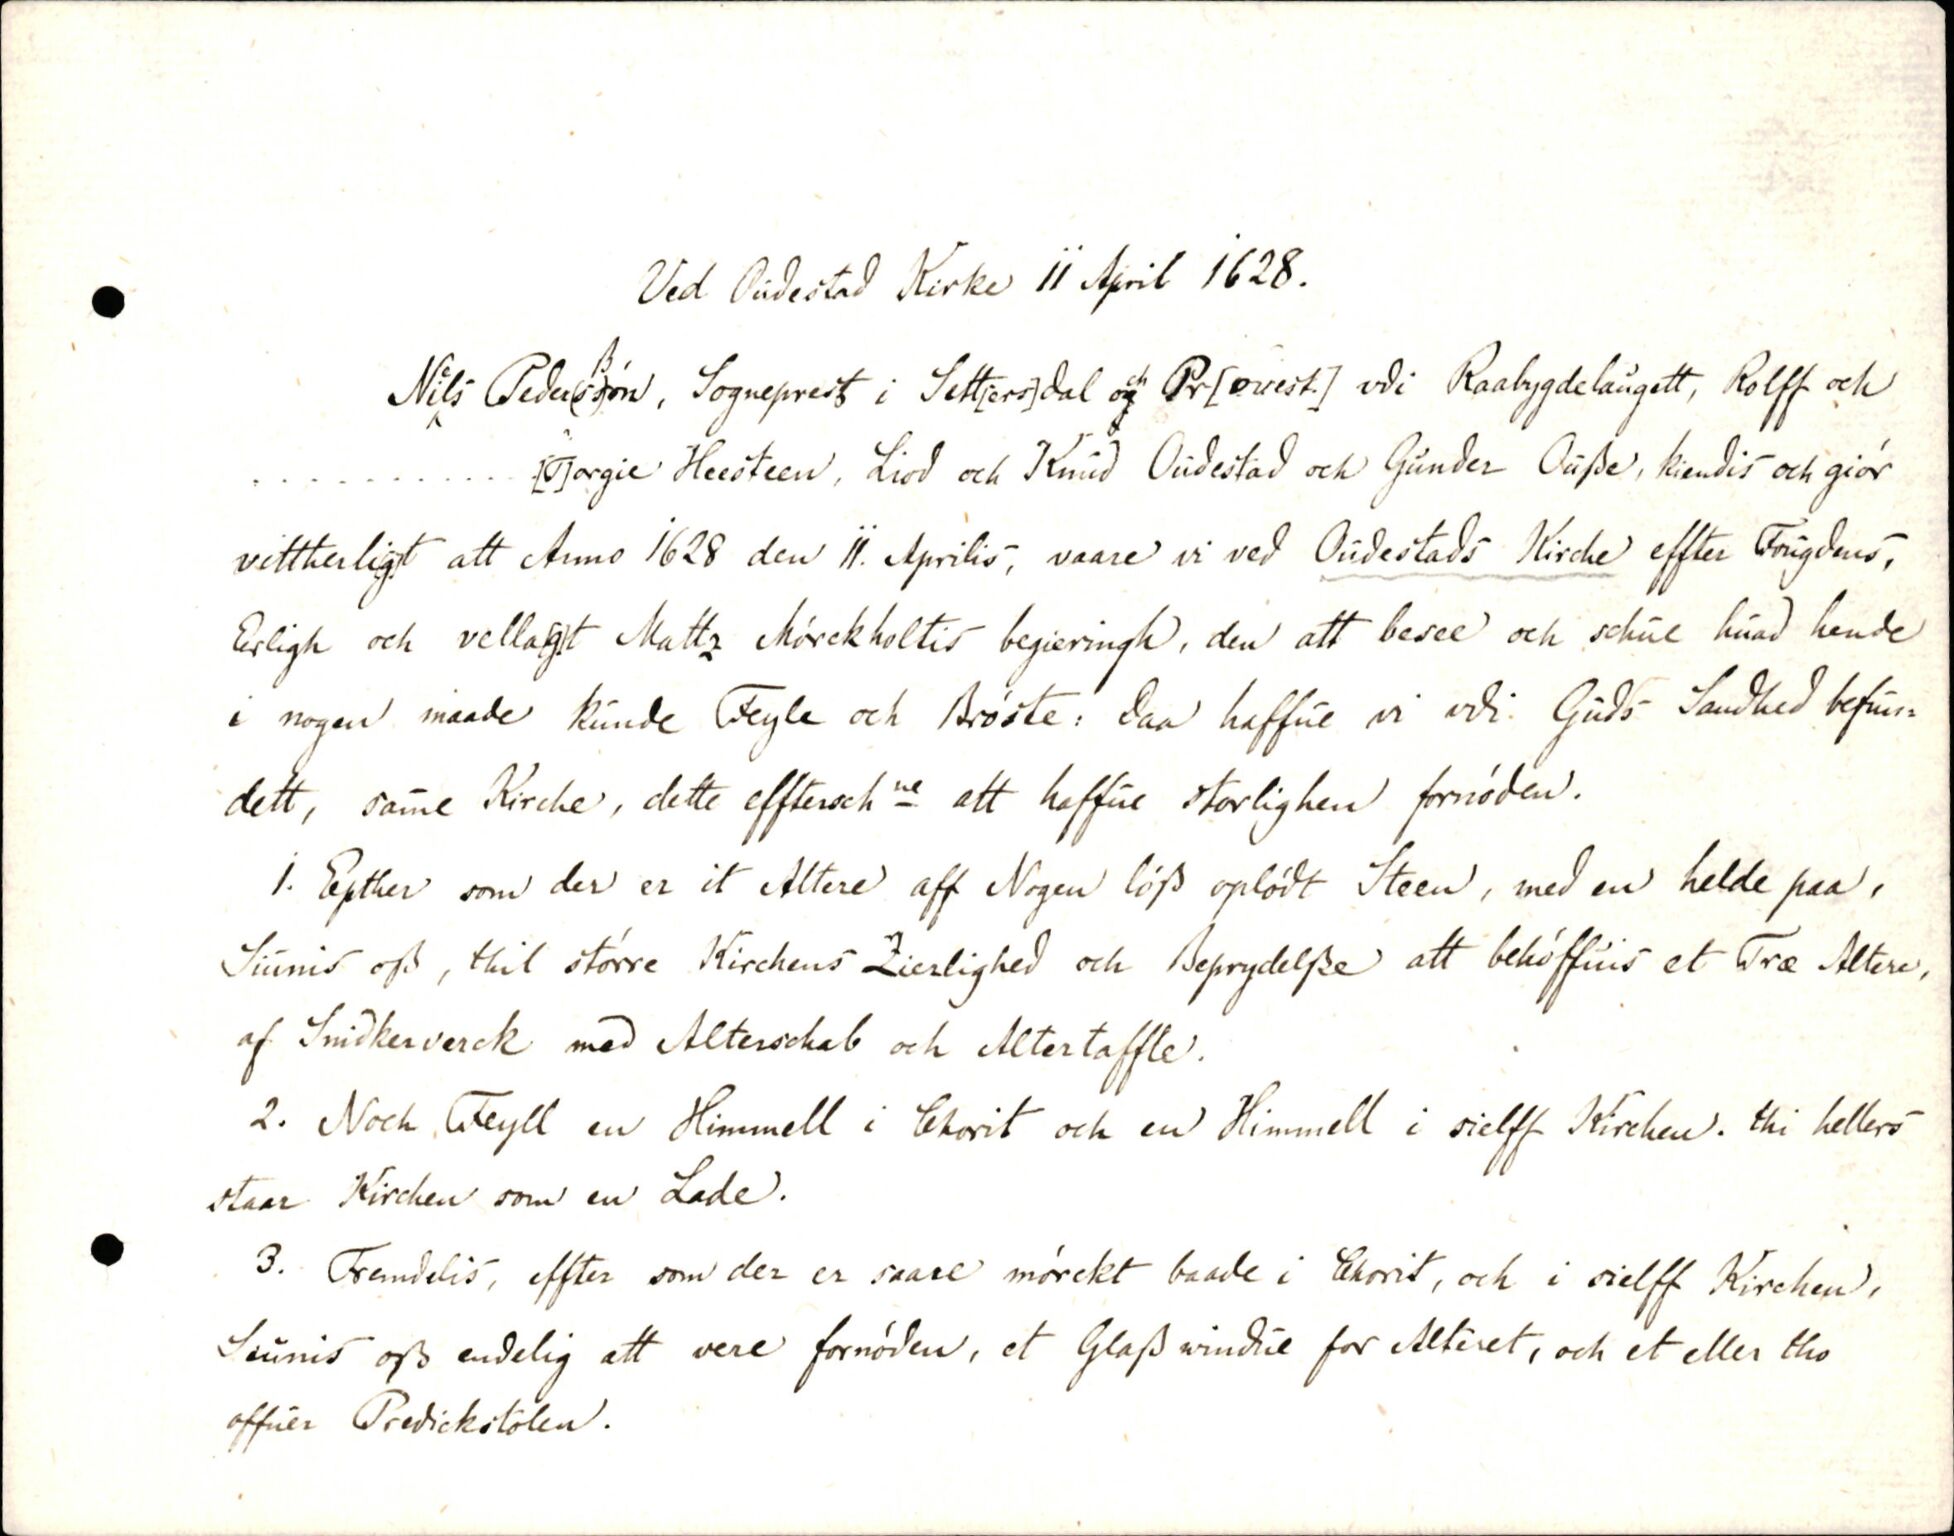 Ved Oudestad Kirke 11 April 1628.
Niels Pederßøn, Sogneprest i Sett[ers]dal och Pr[owest.] vdi Raabygdelaugett, Rolff och
. . . . . . . . . . . [T]orgie Heesteen, Liod och Knud Oudestad och Gunder Ouße, kiendis och giør
vittherligt att Anno 1628 den 11. Aprilis, vaare vi ved Oudestads Kirche effter Fougdens,
Erligh och vellagt Mattz Mørckholtis begieringh, den att besee och schue huad hende
i nogen maade kunde Feyle och Brøste: daa haffue vi vdi Guds Sandhed befun=
dett, same Kirche, dette efftersch ne att haffue storlighen fornøden.
1. Epther som der er it Altere aff Nogen løß oplødt Steen, med en helde paa,
Siunis oß, thil større Kirchens Zierlighed och Beprydelße att behøffuis et Træ Altere,
af Snidkerverck med Alterschab och Altertaffle.
2. Noch Feyll en Himmell i Chorit och en Himmell i sielff Kirchen. thi hellers
staar Kirchen som en Lade.
3. Fremdelis, effter som der er saare mørckt baade i Chorit, och i sielff Kirchen,
Siunis oß endelig att vere fornøden, et Glaß windue for Alteret, och et eller tho
offuer Predickstolen.